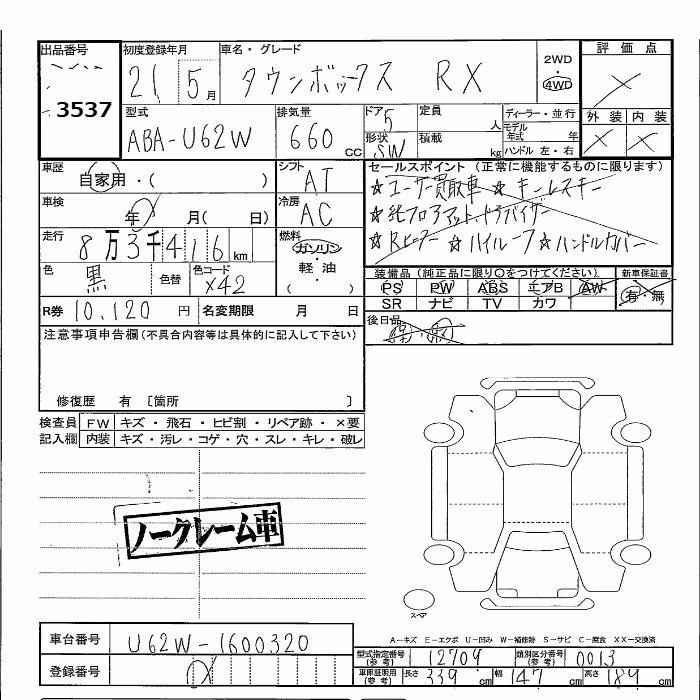 出品番号
3537
初度登録年月
21 5月
車名・グレード
タウンボックス RX
2WD
4WD
評価点
×
外装 内装
× ×
型式
ABA-U62W
排気量
660 cc
ドア 5
形状 SW
定員 人
積載 kg
ディーラー・並行
モデル年式 年
ハンドル 左・右
車歴
自家用・( )
シフト
AT
セールスポイント (正常に機能するものに限ります)
☆ユーザー買取車 ☆キーレスキー
☆純フロアマット、ドラバイザー
☆Rヒーター ☆ハイルーフ ☆ハンドルカバー
車検
年 月( 日)
冷房
AC
走行
8万3千416km
燃料
ガソリン
軽・油
( )
色
黒
色替
色コード
X42
装備品 (純正品に限り○をつけてください)
PS PW ABS エアB AW
SR ナビ TV カワ
新車保証書
有・無
R券 10,120 円
名変期限 月 日
後日品
注意事項申告欄(不具合内容等は具体的に記入して下さい)
修復歴 有 〔箇所 〕
検査員記入欄
FW キズ・飛石・ヒビ割・リペア跡・×要
内装 キズ・汚レ・コゲ・穴・スレ・キレ・破レ
ノークレーム車
スペア
A-キズ E-エクボ U-凹み W-補修跡 S-サビ C-腐食 XX-交換済
車台番号
U62W-1600320
登録番号
型式指定番号(参考) 12709
類別区分番号(参考) 0013
車庫証明用(参考) 長さ 339cm 幅 147cm 高さ 189cm